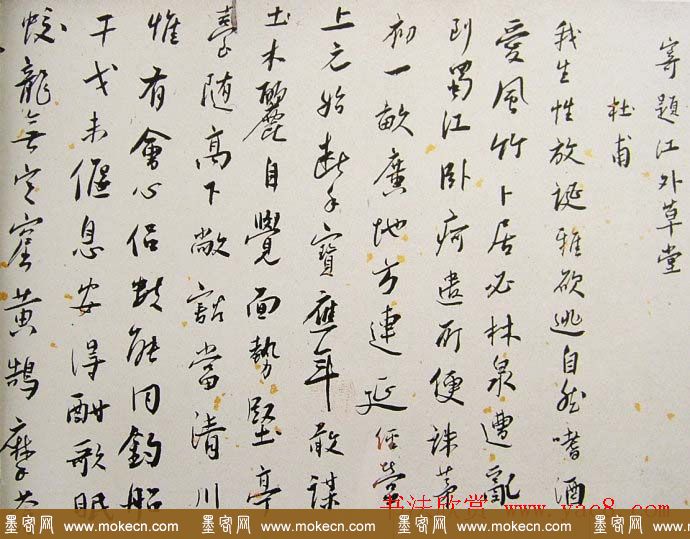 寄題江外草堂
杜甫
我生性放誕雅欲逃自然嗜酒
愛風竹卜居必林泉遭亂
到蜀江臥痾遣所便誅茅
初一畝廣地方連延經營
上元始斷手寶應年敢謀
土木麗自覺面勢堅亭
臺隨高下敞豁當清川
惟有會心侶數能同釣船
干戈未偃息安得酣歌眠
蛟龍無定窟黃鵠摩蒼
书法欣赏 www.yac8.com
墨客网 www.mokecn.com 墨客网 www.mokecn.com 墨客网 www.mokecn.com 墨客网 www.mokecn.com